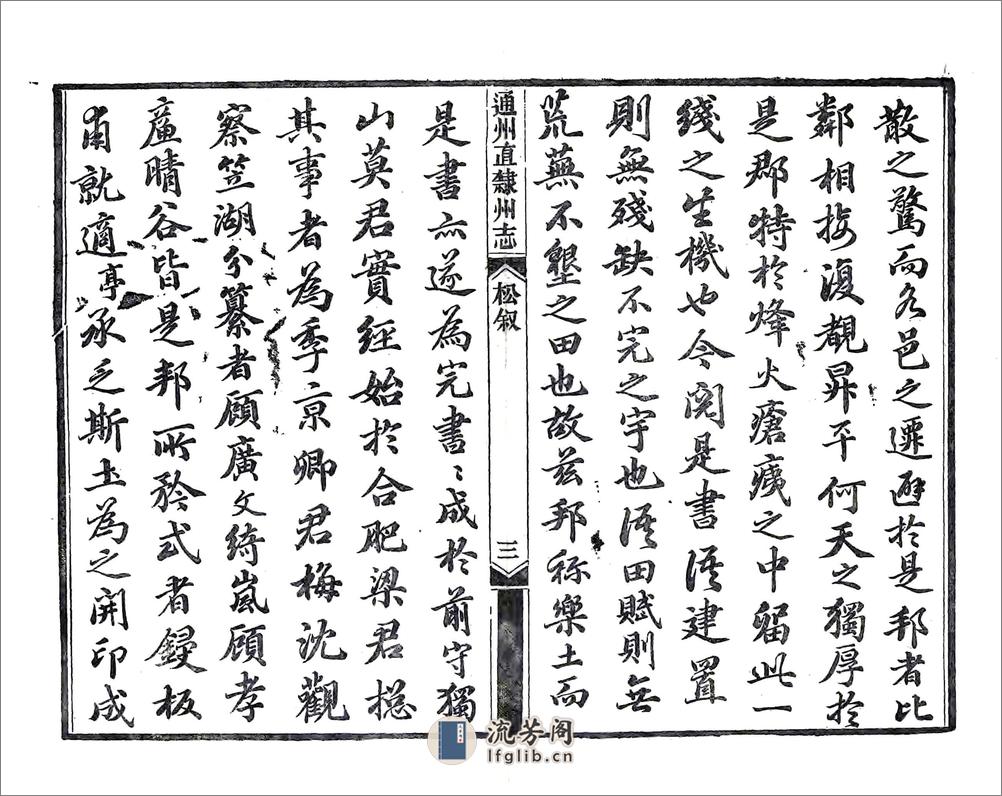 散之驚而各邑之遷避於是邦者比
鄰相接復覩昇平何天之獨厚於
是郡特於烽火瘡痍之中留此一
綫之生機也今閱是書語建置
則無殘缺不完之宇也語田賦則無
荒蕪不墾之田也故茲邦称樂土而
通州直隸州志
松叙
三
是書亦遂為完書〻成於前守獨
山莫君實經始於合肥梁君楤
其事者為季京卿君梅沈觀
察笠湖分纂者顧廣文綺嵐顧孝
廉晴谷皆是邦所矜式者鋟板
甫就適亭承乏斯土為之開印成
流芳阁
lfglib.cn